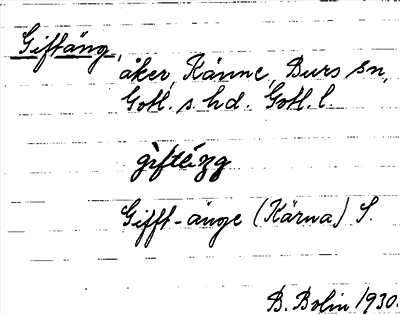 Giftäng,
åker, Känne, Burs sn,
Gotl. s. hd. Gotl. l.
giftéŋg
Gifft-änge (Kärna) S.
B. Bolin 1930.